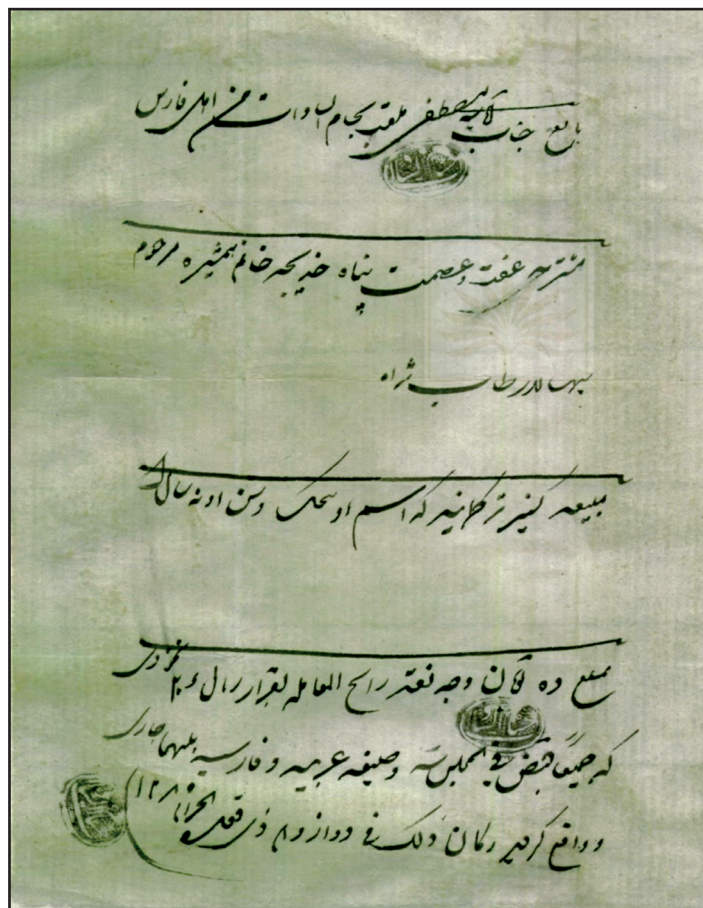 بایع جناب مصطفی ملقب بحسام السادات من اهل فارس
مشتریه عفت و عصمت پناه خدیجه خانم همشیره مرحوم
سپهسالار طاب ثراه
مبیعه کنیز ترکمانیه که اسم او و سن او نه سال
مبلغ ده تومان وجه نقد رایج المعامله بقرار ریال
که جمیعا قبض فی المجلس شد و صیغه عربیه و فارسیه بینهما جاری
و واقع گردید و کان ذلک فی دوازدهم ذی قعده الحرام ۱۲۸